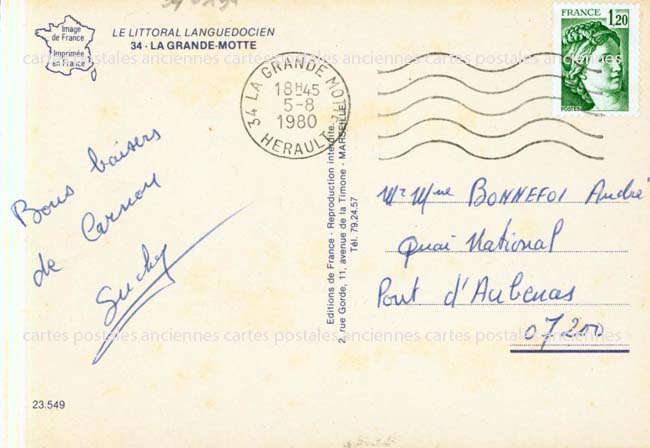 Image
de France
Imprimée
en France
LE LITTORAL LANGUEDOCIEN
34 - LA GRANDE-MOTTE
34 LA GRANDE MOTTE
18H45
5-8
1980
HERAULT
FRANCE
1,20
POSTES
cartes postales anciennes cartes postales anciennes cartes postales anciennes
Bons baisers
de Carnon
Editions de France - Reproduction interdite
2, rue Gorde, 11, avenue de la Timone - MARSEILLE
Tél. 79.24.57
Mr Mme BONNEFOI André
Quai National
Pont d'Aubenas
07200
cartes postales anciennes cartes postales anciennes cartes postales anciennes
23.549